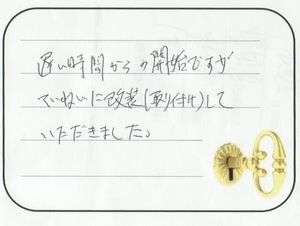 遅い時間からの開始ですが
ていねいに改装(取り付け)して
いただきました。